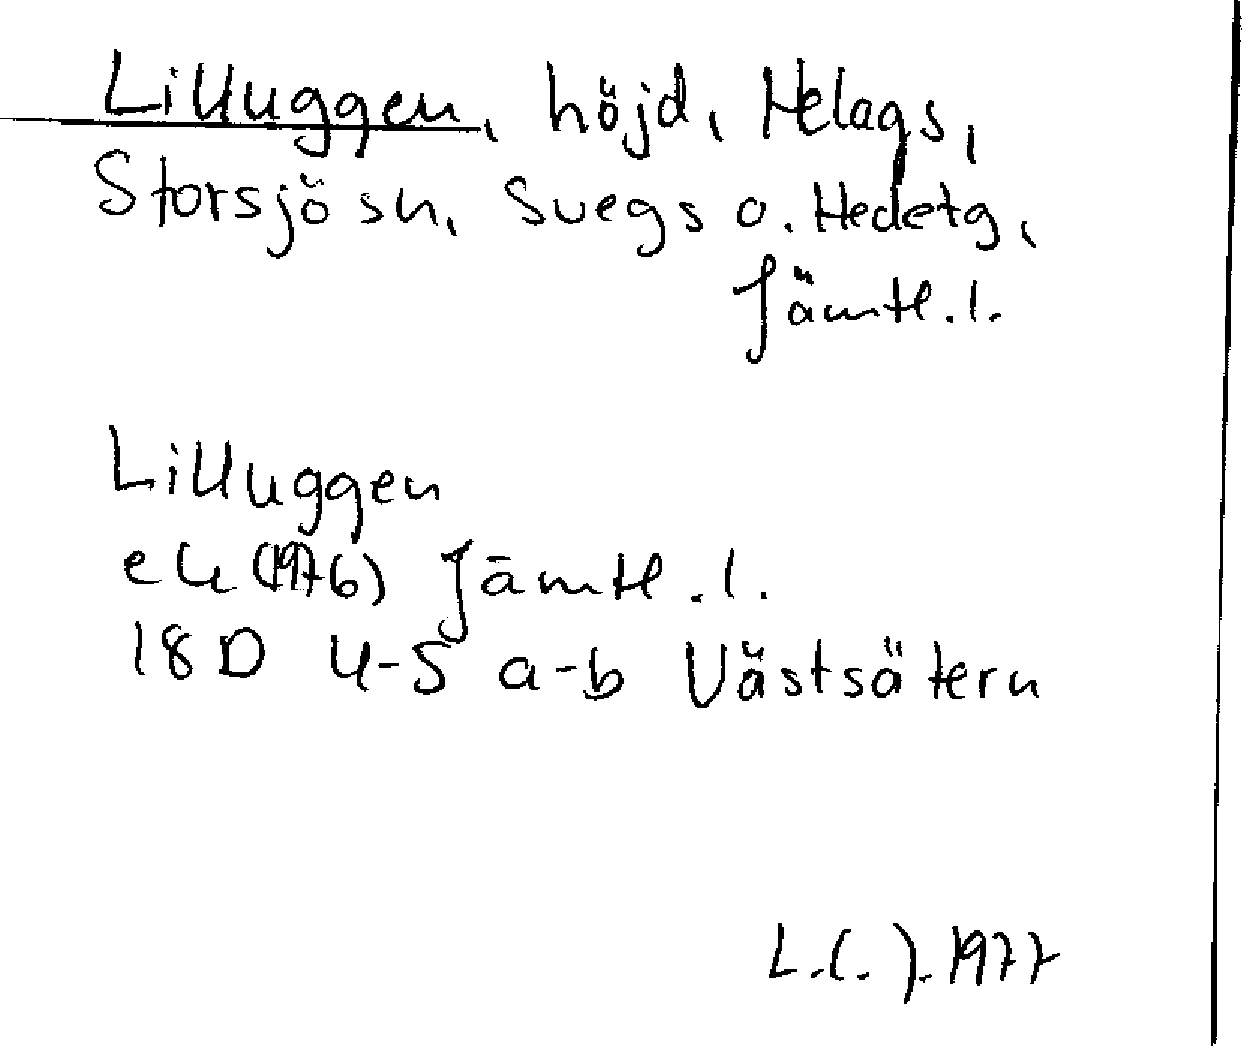 Lilluggen, höjd, Helags,
Storsjö sn, Svegs o. Hedetg,
Jämtl. l.
Lilluggen
ek (1976) Jämtl. l.
18 D 4-5 a-b Västsätern
L.(.). 1977